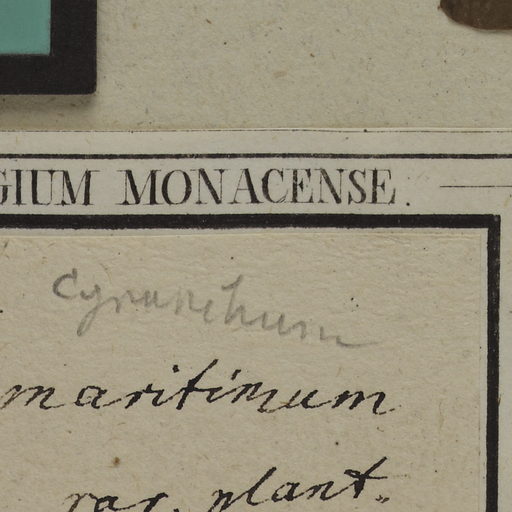 GIUM MONACENSE.
Cynanchum
maritimum
rar. plant.